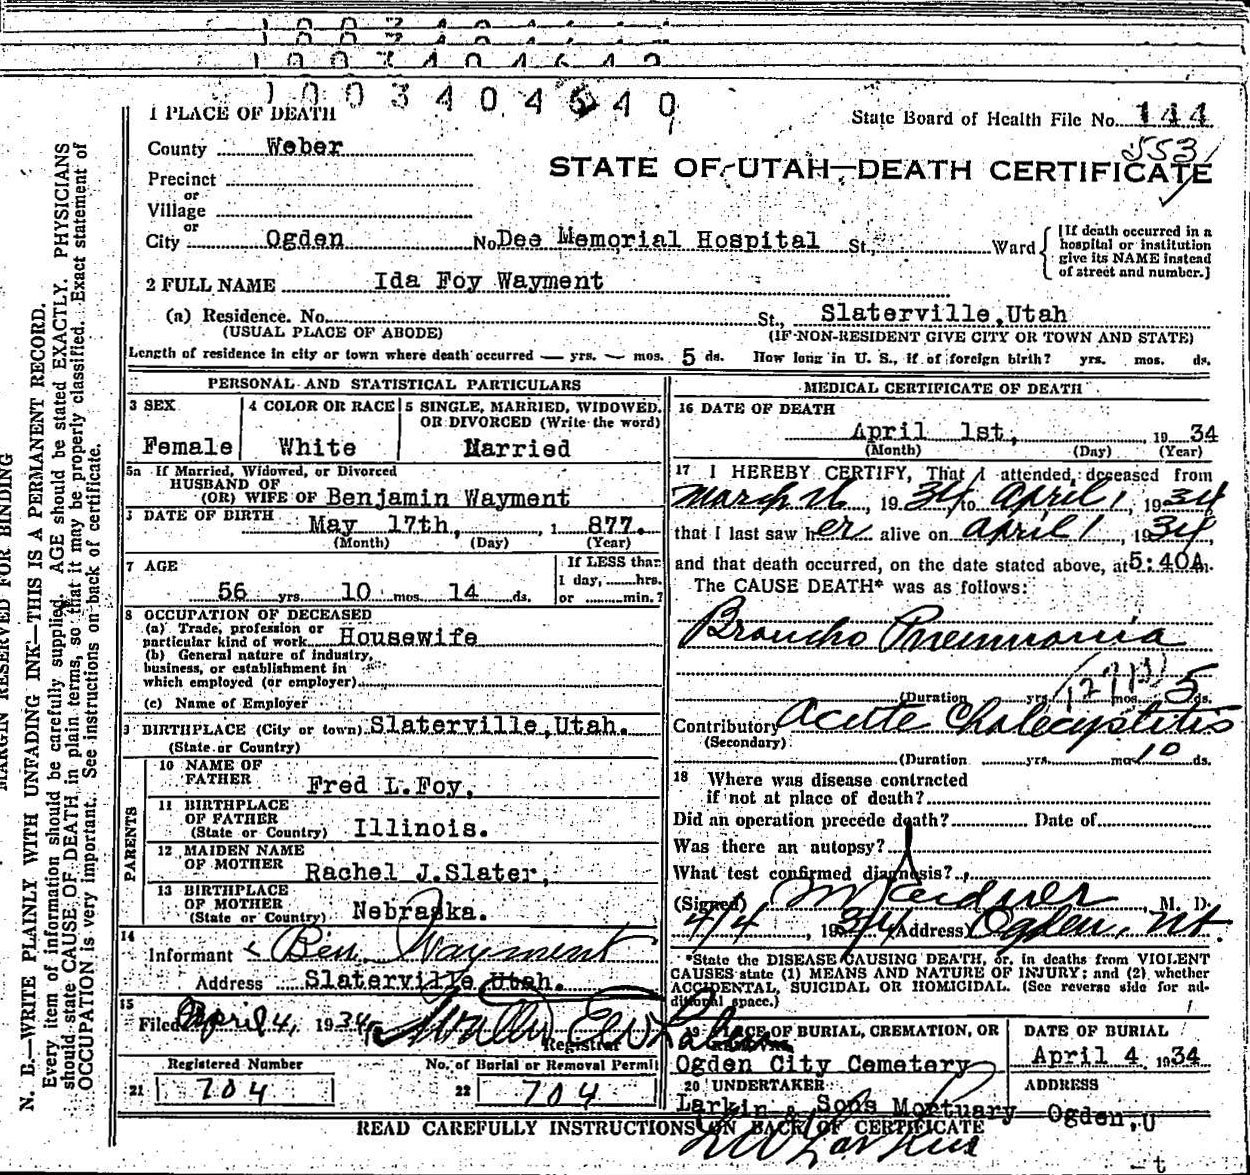 1003404640
1 PLACE OF DEATH
State Board of Health File No. 144
553
County Weber
STATE OF UTAH—DEATH CERTIFICATE
Precinct
or
Village
or
City Ogden No. Dee Memorial Hospital St., Ward
[If death occurred in a hospital or institution give its NAME instead of street and number.]
2 FULL NAME Ida Foy Wayment
(a) Residence. No. St., Slaterville, Utah
(USUAL PLACE OF ABODE) (IF NON-RESIDENT GIVE CITY OR TOWN AND STATE)
Length of residence in city or town where death occurred — yrs. — mos. 5 ds. How long in U. S., if of foreign birth? yrs. mos. ds.
PERSONAL AND STATISTICAL PARTICULARS
3 SEX
Female
4 COLOR OR RACE
White
5 SINGLE, MARRIED, WIDOWED, OR DIVORCED (Write the word)
Married
5a If Married, Widowed, or Divorced
HUSBAND OF
(OR) WIFE OF Benjamin Wayment
DATE OF BIRTH May 17th, 1877.
(Month) (Day) (Year)
7 AGE
56 yrs. 10 mos. 14 ds.
If LESS than
1 day, hrs.
or min.?
8 OCCUPATION OF DECEASED
(a) Trade, profession or
particular kind of work Housewife
(b) General nature of industry,
business, or establishment in
which employed (or employer)
(c) Name of Employer
BIRTHPLACE (City or town) Slaterville, Utah.
(State or Country)
PARENTS
10 NAME OF
FATHER Fred L. Foy,
11 BIRTHPLACE
OF FATHER
(State or Country) Illinois.
12 MAIDEN NAME
OF MOTHER Rachel J. Slater,
13 BIRTHPLACE
OF MOTHER
(State or Country) Nebraska.
14
Informant Ben. Wayment
Address Slaterville, Utah.
15
Filed April 4, 1934
Registrar
Registered Number
21 704
No. of Burial or Removal Permit
22 704
MEDICAL CERTIFICATE OF DEATH
16 DATE OF DEATH
April 1st, 1934
(Month) (Day) (Year)
17 I HEREBY CERTIFY, That I attended deceased from
March 26, 1934 to April 1, 1934
that I last saw her alive on April 1, 1934,
and that death occurred, on the date stated above, at 5:40A m.
The CAUSE DEATH* was as follows:
Broncho Pneumonia
(Duration yrs. mos. 5 ds.
Contributory Acute Cholecystitis
(Secondary)
(Duration yrs. mos. 10 ds.
18 Where was disease contracted
if not at place of death?
Did an operation precede death? Date of
Was there an autopsy?
What test confirmed diagnosis?
(Signed) , M. D.
4/4, 1934 (Address) Ogden, Ut.
*State the DISEASE CAUSING DEATH, or, in deaths from VIOLENT
CAUSES state (1) MEANS AND NATURE OF INJURY; and (2) whether
ACCIDENTAL, SUICIDAL OR HOMICIDAL. (See reverse side for additional space.)
19 PLACE OF BURIAL, CREMATION, OR
REMOVAL
Ogden City Cemetery
DATE OF BURIAL
April 4 1934
20 UNDERTAKER
Larkin & Sons Mortuary
ADDRESS
Ogden, U
READ CAREFULLY INSTRUCTIONS ON BACK OF CERTIFICATE
MARGIN RESERVED FOR BINDING
N. B.—WRITE PLAINLY WITH UNFADING INK—THIS IS A PERMANENT RECORD.
Every item of information should be carefully supplied. AGE should be stated EXACTLY. PHYSICIANS
should state CAUSE OF DEATH in plain terms, so that it may be properly classified. Exact statement of
OCCUPATION is very important. See instructions on back of certificate.